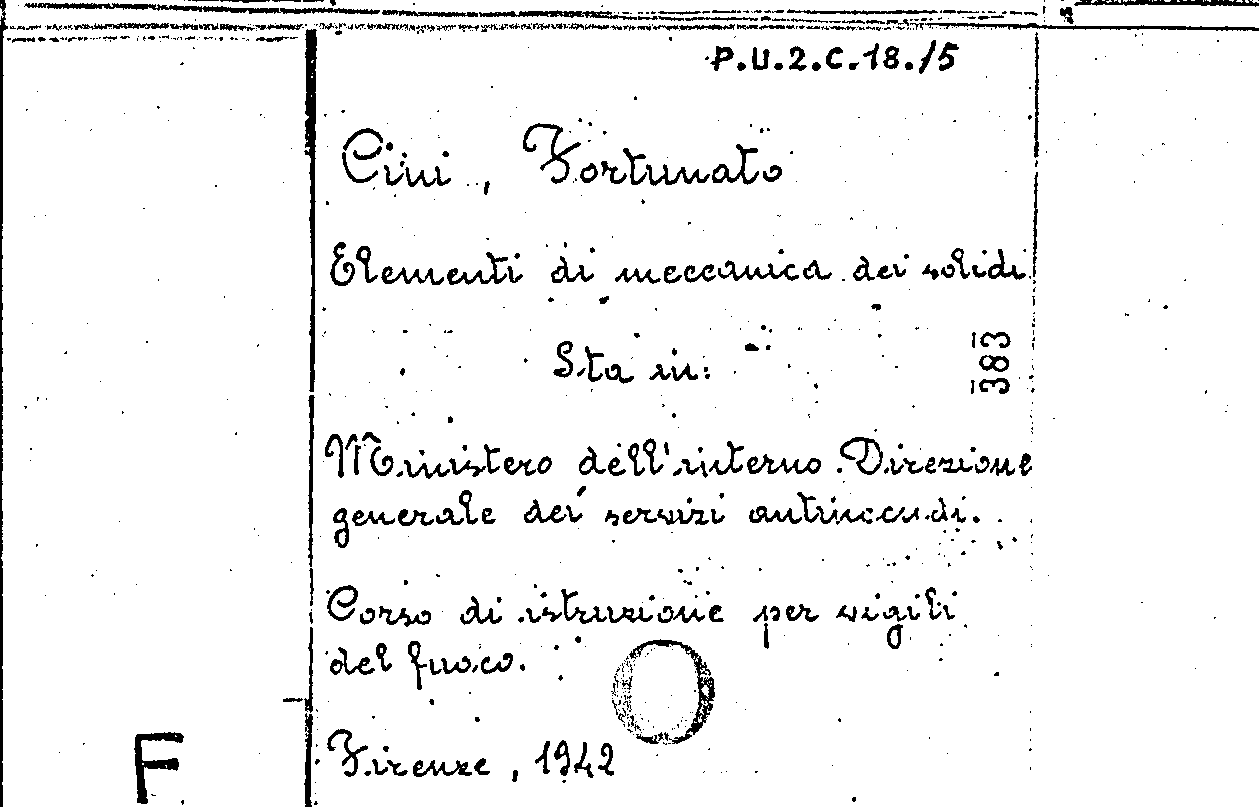 P.U.2.C.18./5
Cini, Fortunato
Elementi di meccanica dei solidi
Sta in:
383
Ministero dell'interno. Direzione
generale dei servizi antincendi.
Corso di istruzione per vigili
del fuoco.
Firenze, 1942
F